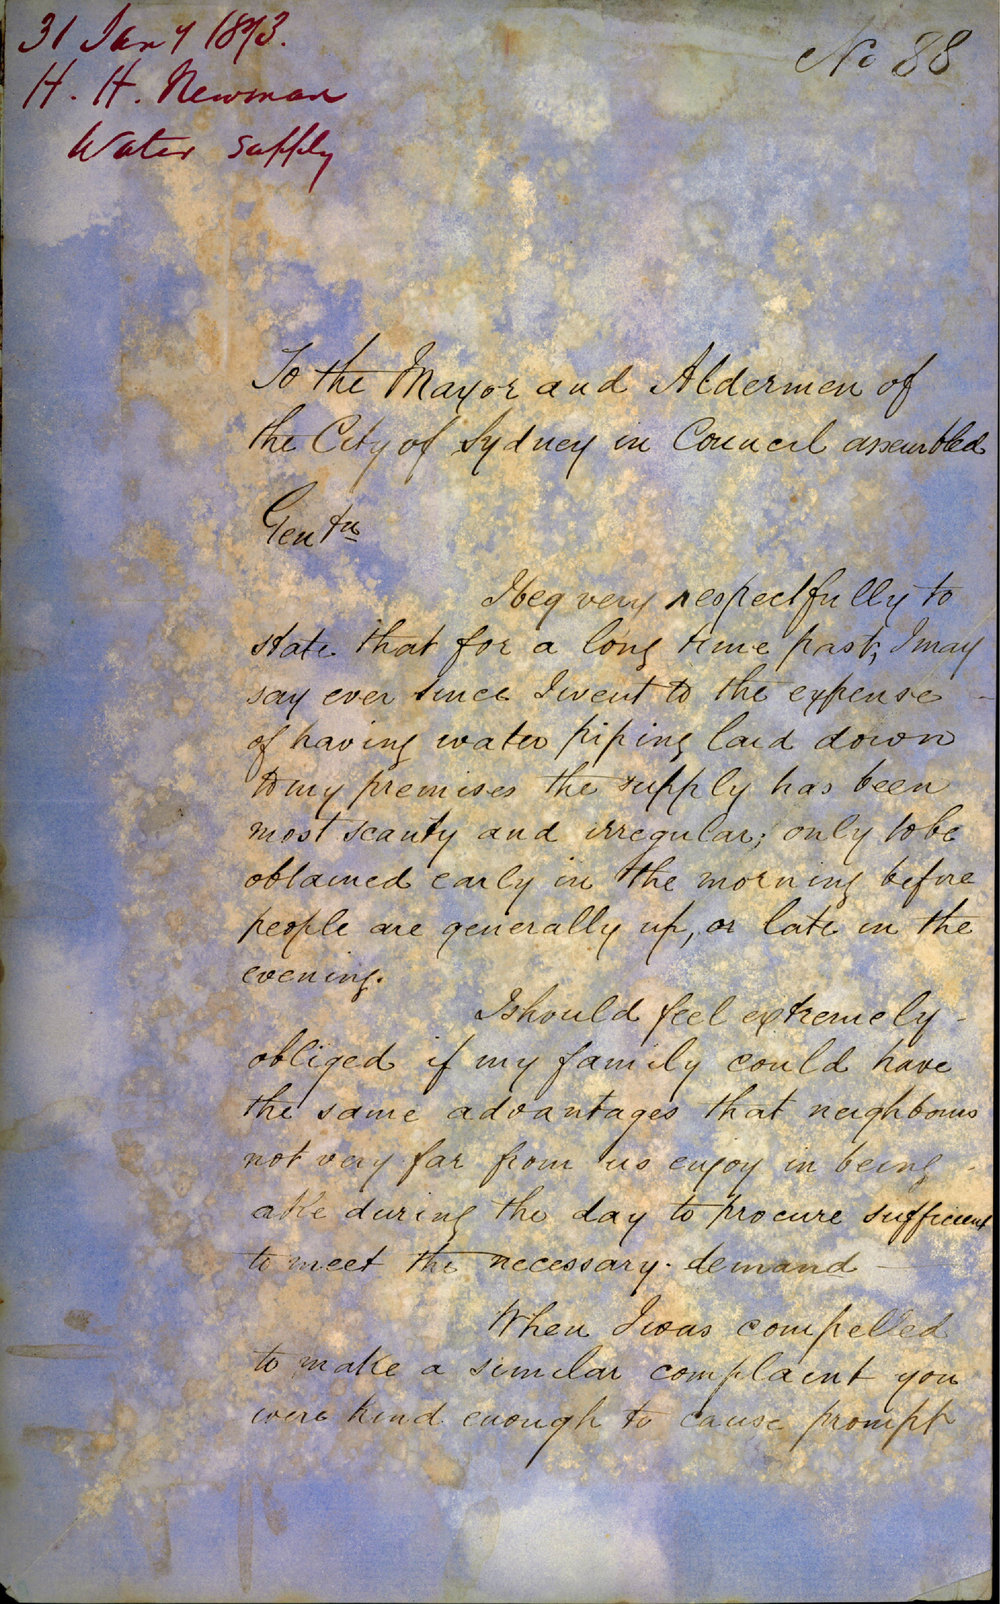 31 Jany 1873.
H. H. Newman
Water supply
No 88
To the Mayor and Aldermen of
the City of Sydney in Council assembled
Gentn
I beg very respectfully to
state that for a long time past, I may
say ever since I went to the expense
of having water piping laid down
to my premises the supply has been
most scanty and irregular; only to be
obtained early in the morning before
people are generally up, or late in the
evening.
I should feel extremely
obliged if my family could have
the same advantages that neighbours
not very far from us enjoy in being
able during the day to procure sufficient
to meet the necessary demand
When I was compelled
to make a similar complaint you
were kind enough to cause prompt